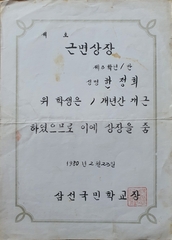 제 호
근면상장
제2학년 1반
성명 한정희
위 학생은 1개년간 개근
하였으므로 이에 상장을 줌
1980년 2월 23일
삼전국민학교장